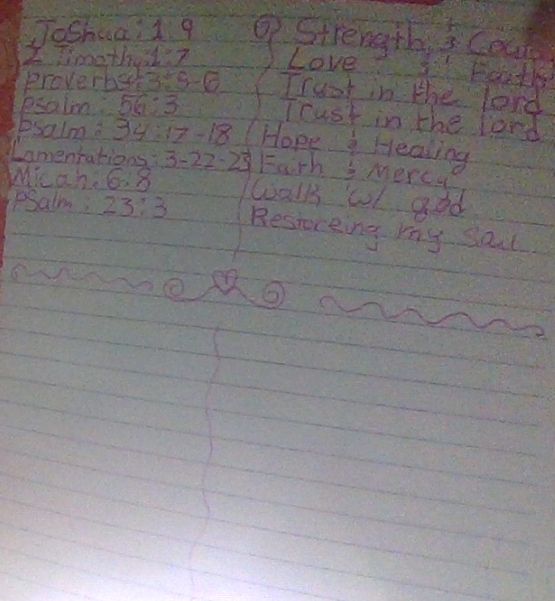 Joshua: 1:9 Strength & Cou
2 Timothy: 1:7 Love & Faith
Proverbs: 3-5-6 Trust in the lord
Psalm: 56:3 Trust in the lord
Psalm: 34:17-18 Hope & Healing
Lamentations: 3-22-23 Faith & Mercy
Micah: 6:8 Walk w/ god
Psalm: 23:3 Restoreing my Soul